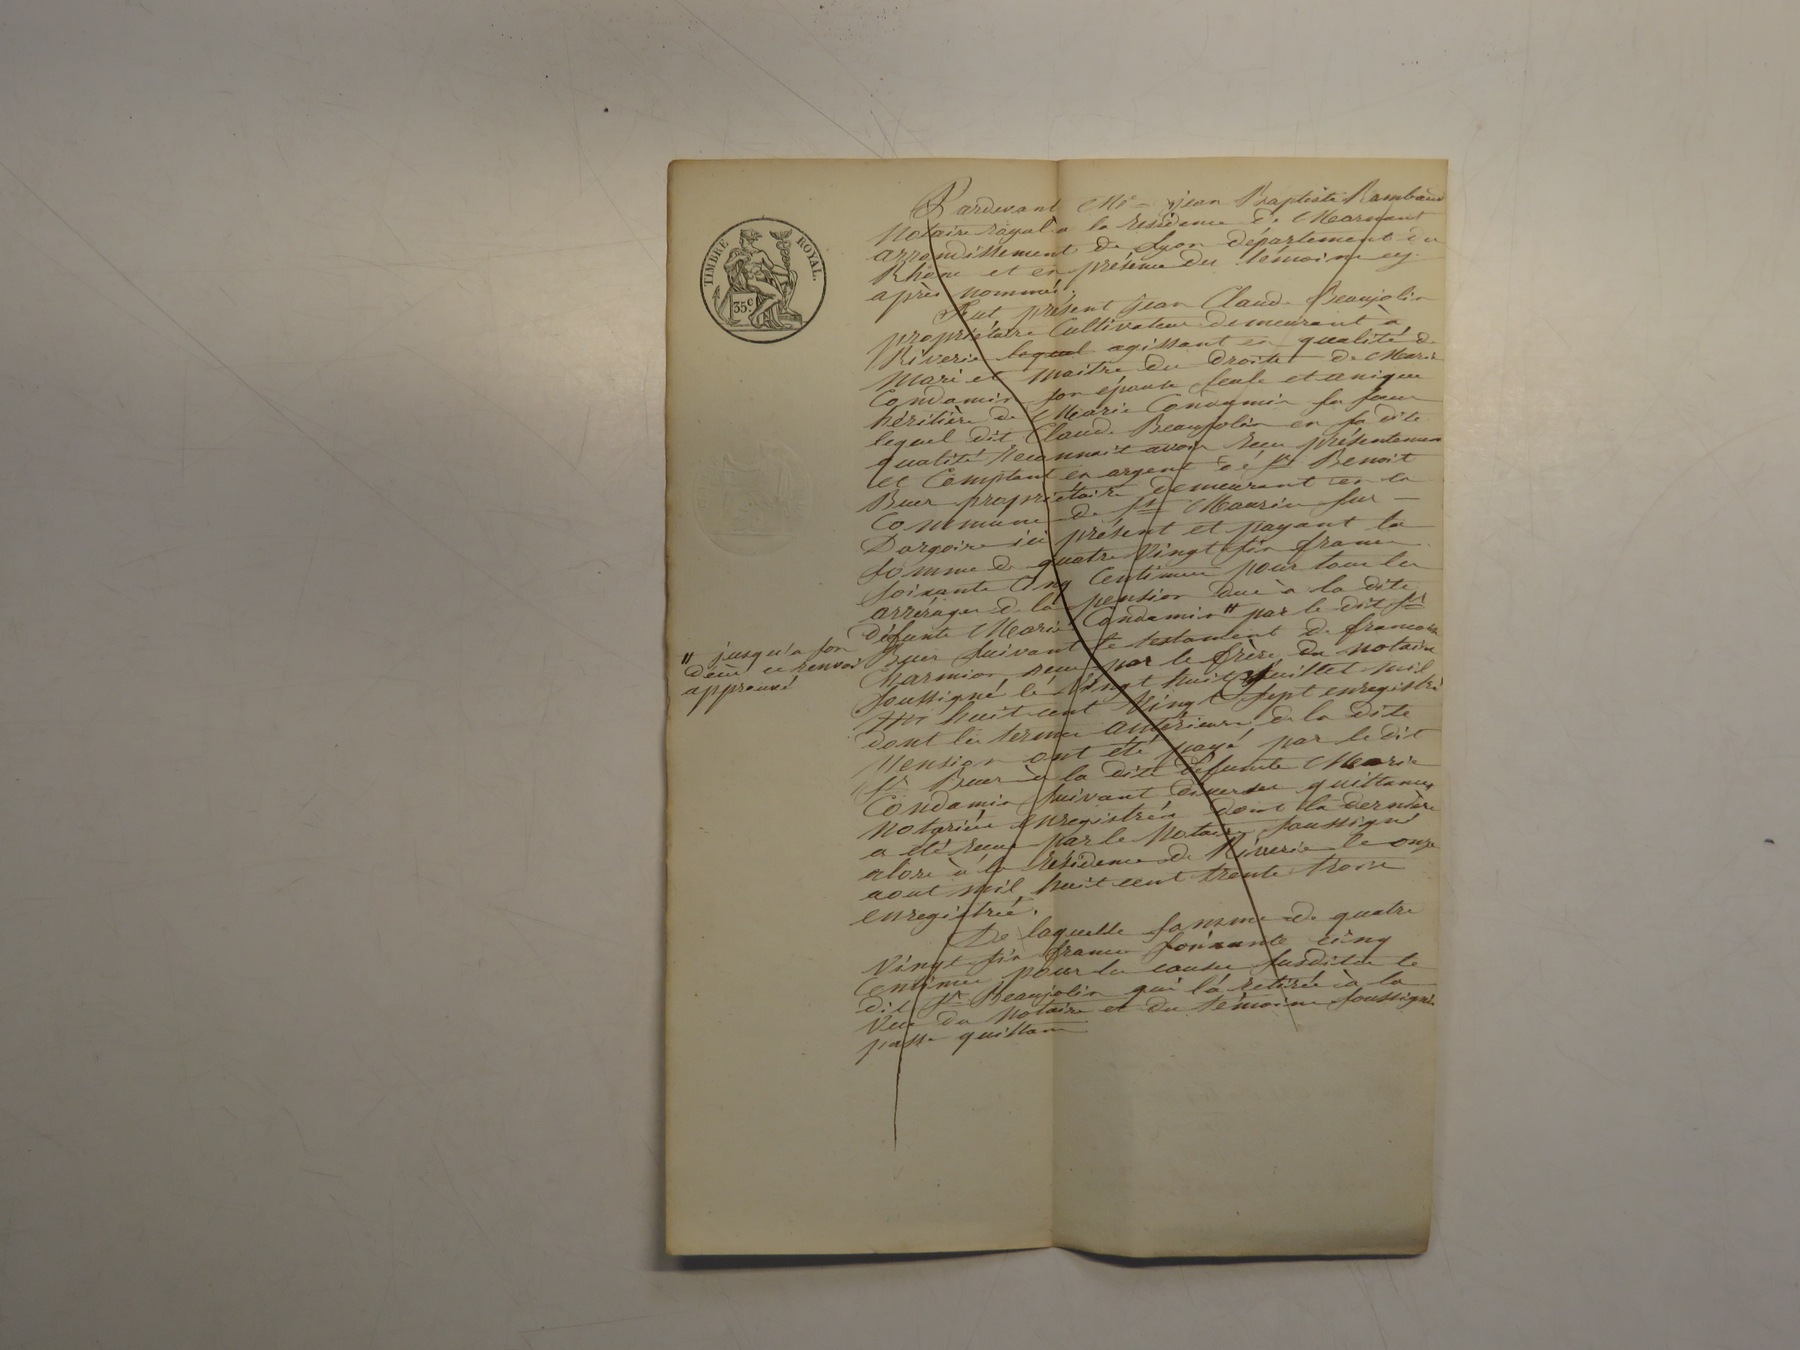 TIMBRE ROYAL.
35c
Pardevant Me jean Baptiste Rambaud
Notaire royal a la résidence de Mornant
arrondissement de Lyon département du
Rhône et en présence des témoins cy
après nommés.
Fut présent Jean Claude Beaujolin
propriétaire Cultivateur demeurant à
Riverie lequel agissant en qualité de
Mari et Maitre des droits de Marie
Condamin son épouse seule et unique
héritière de Marie Condamin sa sœur
lequel dit Claude Beaujolin en sa dite
qualité reconnait avoir reçu présentement
et Comptant en argent de sr Benoit
Buer propriétaire demeurant en la
Commune de st Maurice sur
Dargoire ici présent et payant la
somme de quatre Vingt six francs
soixante Cinq Centimes pour tous les
arrérages de la pension due à la dite
défunte Marie Condamin " par le dit sr
" jusqu'a son
décès ce renvoi
approuvé
Buer suivant le testament de francois
Charmion reçu par le frère du notaire
soussigné le Vingt huit juillet mil
huit cent Vingt sept enregistré
dont les termes antérieurs de la dite
pension ont été payé par le dit
sr Buer à la dite défunte Marie
Condamin suivant diverses quittances
Notariées enregistrées dont la dernière
a été reçue par le Notaire soussigné
alors à la résidence de Riverie le onze
aout mil huit cent trente trois
enregistrée.
De laquelle somme de quatre
Vingt six francs soixante cinq
Centimes pour les causes susdites le
dit sr Beaujolin qui l'a retirée à la
Vue du Notaire et des témoins soussignés
passe quittance